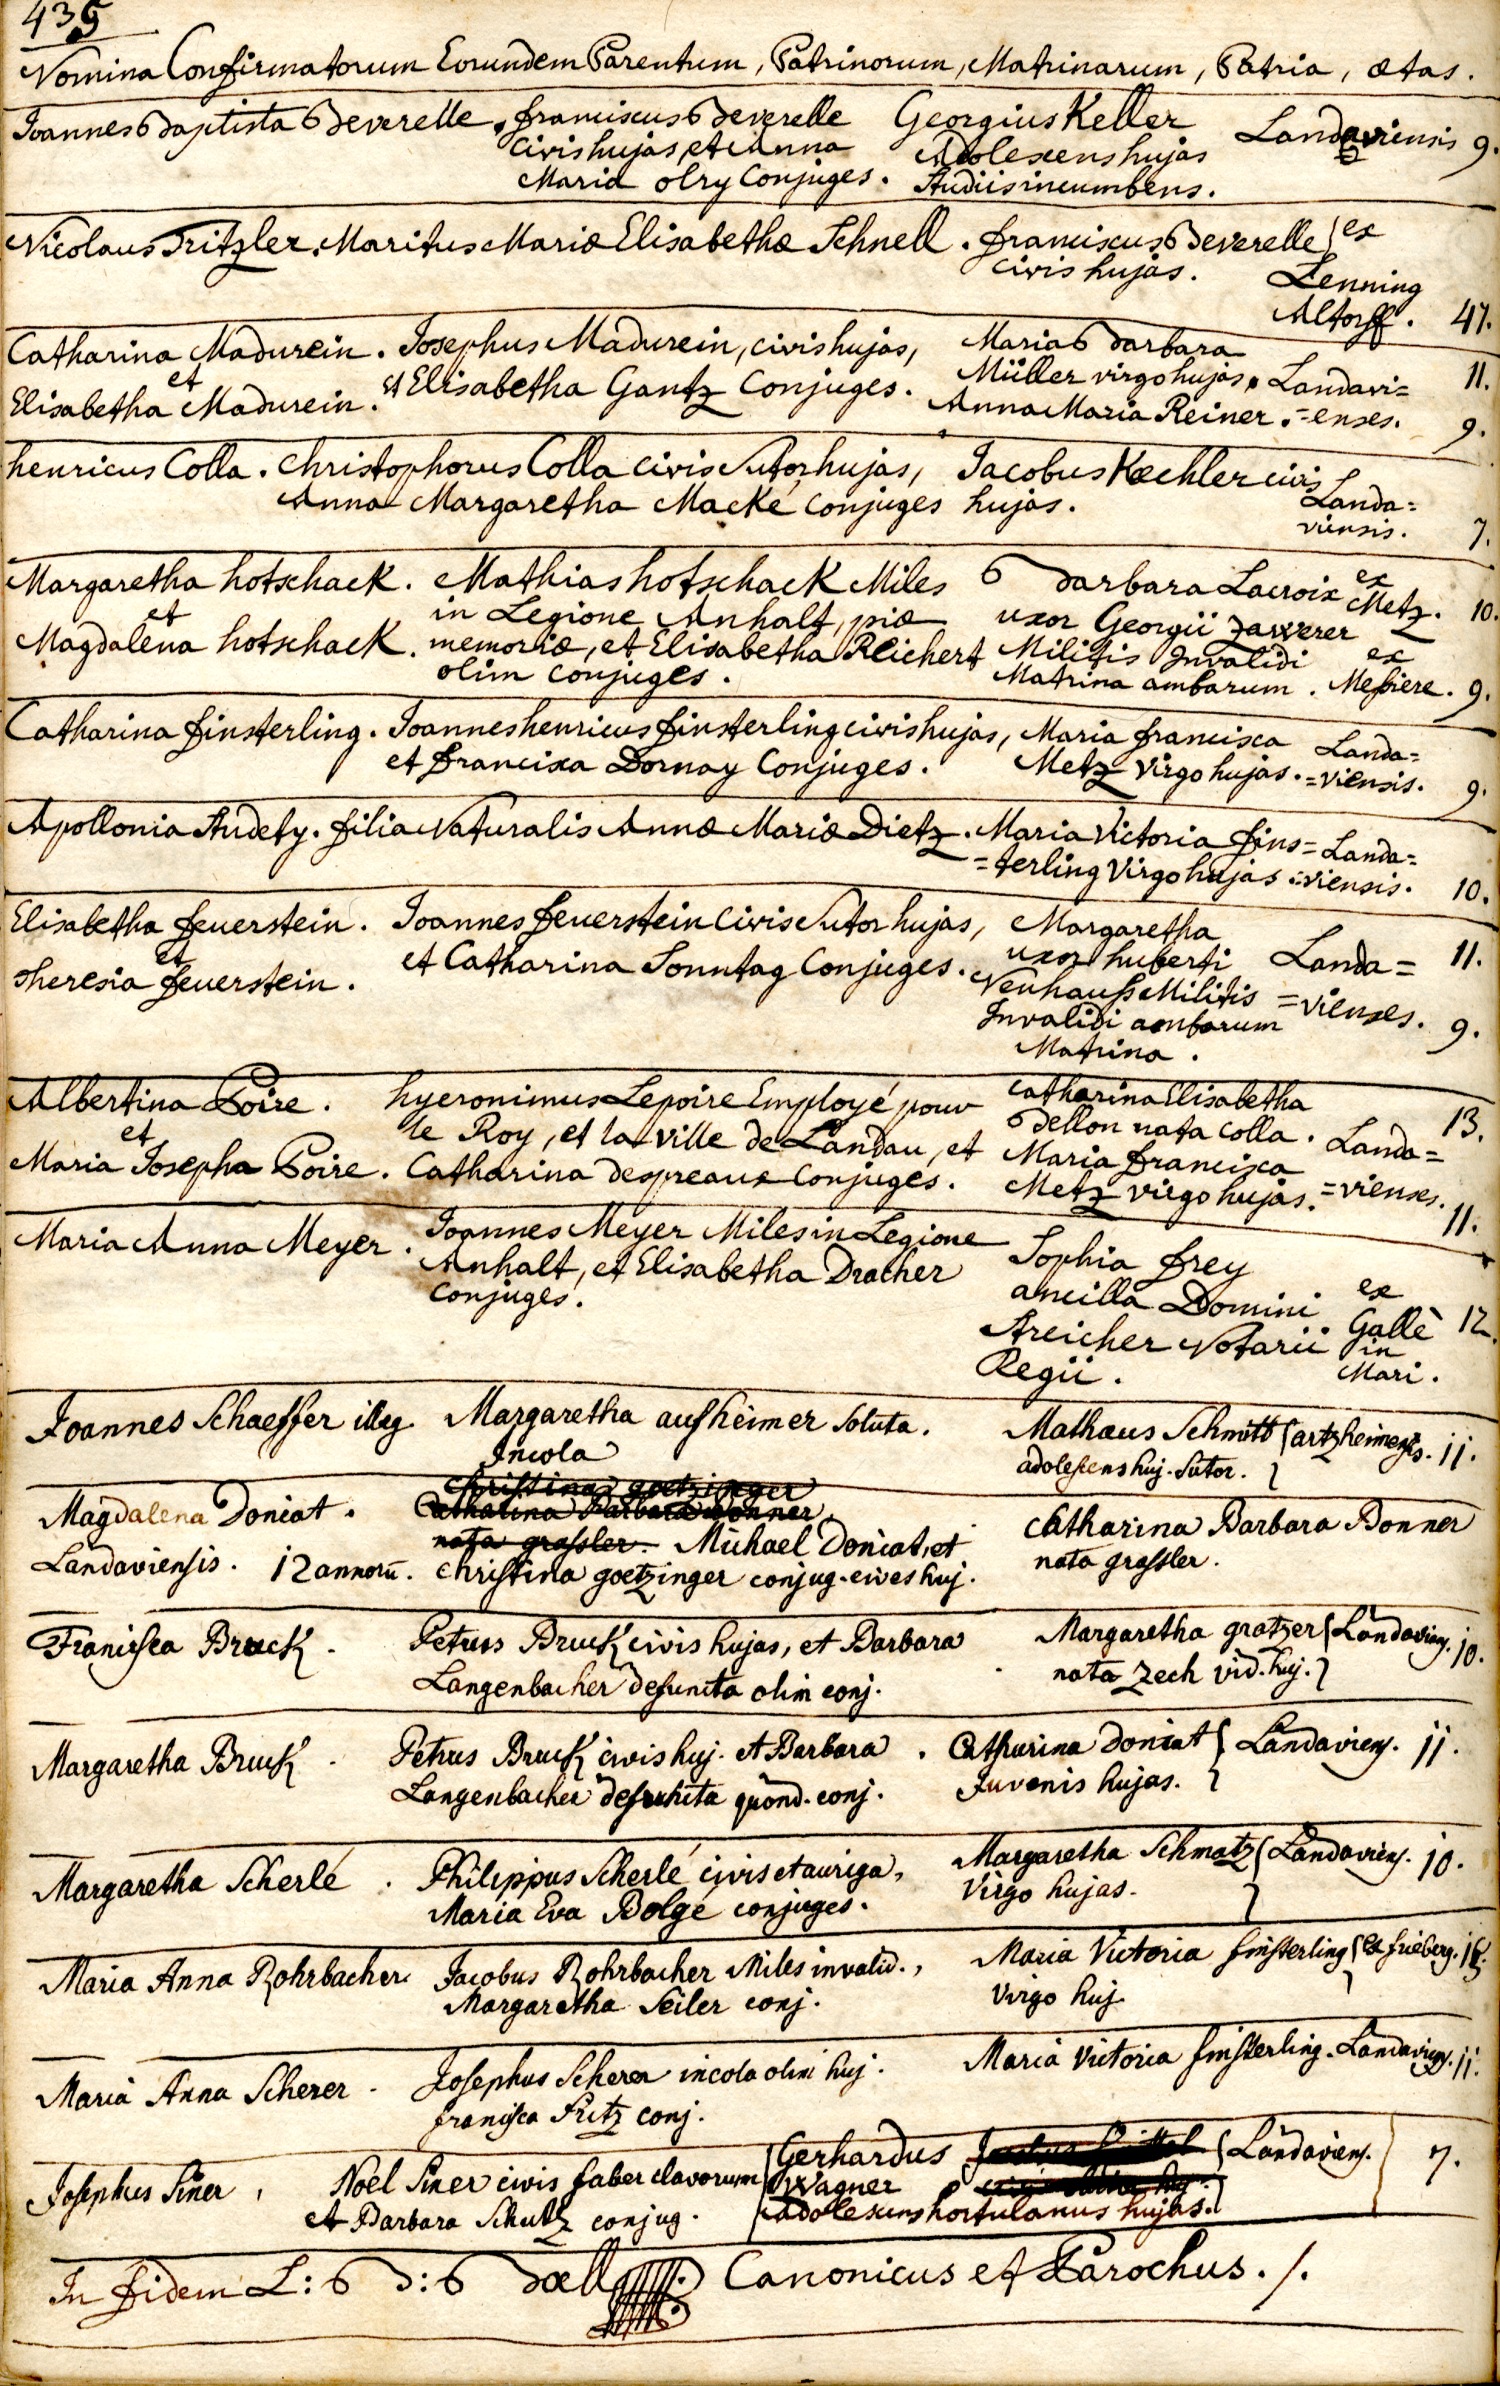 435
Nomina Confirmatorum Eorundem Parentum, Patrinorum, Matrinarum, Patria, ætas.
Joannes Baptista Beverelle. franciscus Beverelle Georgius Keller Landaviensis 9.
civis hujas, et Anna Adolescens hujas
Maria olry Conjuges. Studiis incumbens.
Nicolaus Tritzler. Maritus Mariæ Elisabethæ Schnell. franciscus Beverelle ex
civis hujas. Lenning
Altorff. 47.
Catharina Madurein. Josephus Madurein, civis hujas, Maria Barbara
et Müller virgo hujas. Landavi= 11.
Elisabetha Madurein. et Elisabetha Gantz Conjuges. Anna Maria Reiner. =enses. 9.
henricus Colla. Christophorus Colla civis Sutor hujas, Jacobus Kœchler civis
Anna Margaretha Macké conjuges hujas. Landa=
viensis. 7.
Margaretha hotschack. Mathias hotschack Miles Barbara Lacroix ex Metz. 10.
et in Legione Anhalt, piæ uxor Georgii
Magdalena hotschack. memoriæ, et Elisabetha Reichert Militis Invalidi ex
olim conjuges. Matrina ambarum. Messiere. 9.
Catharina finsterling. Joannes henricus finsterling civis hujas, Maria francisca Landa=
et francisca Dornay Conjuges. Metz virgo hujas. =viensis. 9.
Apollonia Studety. filia Naturalis Annæ Mariæ Dietz. Maria Victoria fins= Landa=
=terling Virgo hujas =viensis. 10.
Elisabetha feuerstein. Joannes feuerstein Civis Sutor hujas, Margaretha
et et Catharina Sonntag Conjuges. uxor huberti Landa= 11.
Theresia feuerstein. Neuhauss Militis =vienses.
Invalidi ambarum 9.
Matrina.
Albertina Poire. hyeronimus Lepoire Employé pour Catharina Elisabetha 13.
et le Roy, et la ville de Landau, et Bellon nata colla. Landa=
Maria Josepha Poire. Catharina despreaux Conjuges. Maria francisca
Metz virgo hujas. =vienses.
11.
Maria Anna Meyer. Joannes Meyer Miles in Legione Sophia frey
Anhalt, et Elisabetha Dracher ancilla Domini ex
conjuges. Streicher Notarii Gallè 12.
Regii. in
Mari.
Joannes Schaeffer illeg. Margaretha aufheimer soluta. Mathæus Schmitt artzheimensis. 11.
Incola adolescens huj. Sutor.
Christina goetzinger
Magdalena Doniat. Catharina Barbara Donner Catharina Barbara Donner
nata grassler. Michael Doniat, et nata grassler.
Landaviensis. 12 annorū. Christina goetzinger conjug. cives huj.
Francisca Bruck. Petrus Bruck civis hujas, et Barbara Margaretha gratzer Landaviens. 10.
Langenbacher defuncta olim conj. nata Zech vid. huj.
Margaretha Bruck. Petrus Bruck civis huj. et Barbara. Catharina Doniat Landaviens. 11.
Langenbacher defuncta quond. conj. Juvenis hujas.
Margaretha Scherlé. Philippus Scherlé civis et auriga, Margaretha Schmatz Landaviens. 10.
Maria Eva Bolgé conjuges. Virgo hujas.
Maria Anna Rohrbacher Jacobus Rohrbacher Miles invalid., Maria Victoria finsterling ex frieberg.
Margaretha Seiler conj. Virgo huj.
Maria Anna Scherer. Josephus Scherer incola olim huj. Maria Victoria finsterling. Landaviens. 11.
francisca Fritz conj.
Josephus Siner, Noel Siner civis faber clavorum Gerhardus Landaviens. 7.
et Barbara Schultz conjug. Wagner
adolescens hortulanus hujas.
In fidem L: B: Canonicus et Parochus./.